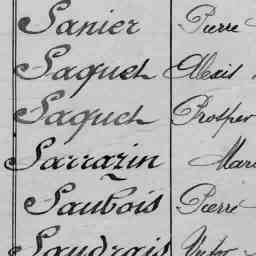 Sanier Pierre
Saquet Alexis
Saquet Prosper
Sarrazin Mari
Saubois Pierre
Saudrais Victor